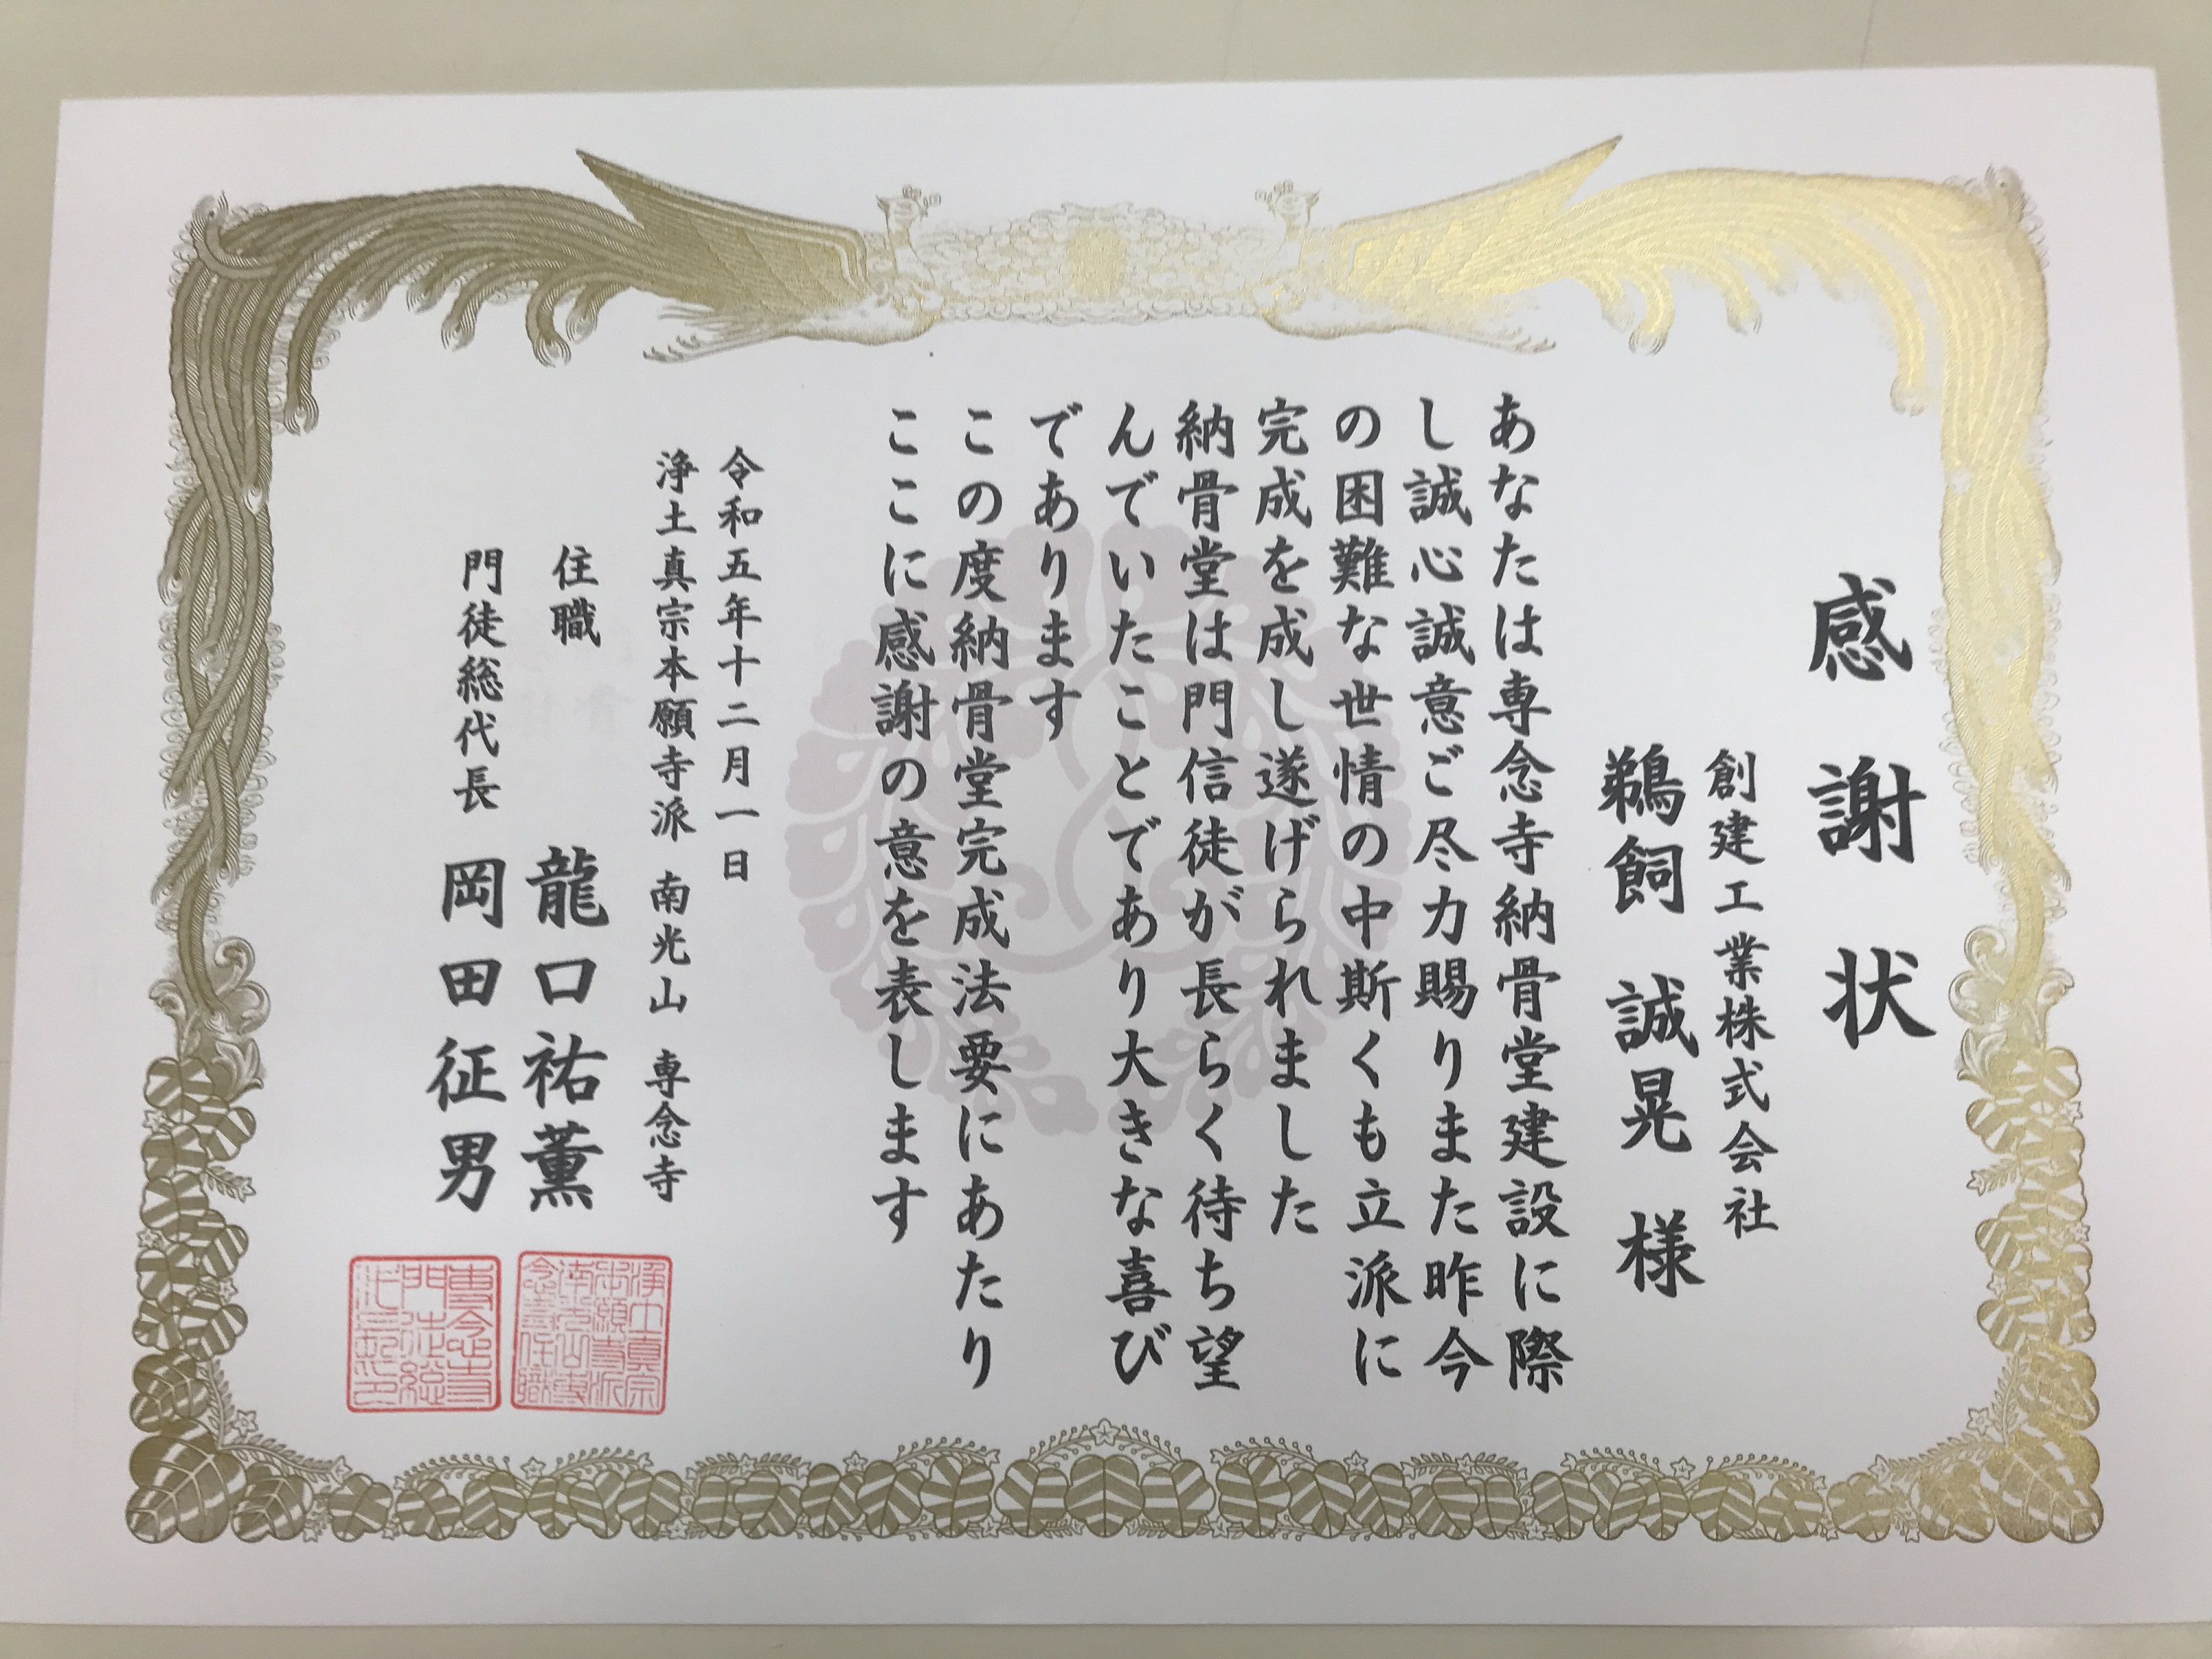 感謝状
創建工業株式会社
鵜飼 誠晃 様
あなたは専念寺納骨堂建設に際
し誠心誠意ご尽力賜りました昨今
の困難な世情の中斯くも立派に
完成を成し遂げられました
納骨堂は門信徒が長らく待ち望
んでいたことであり大きな喜び
であります
この度納骨堂完成法要にあたり
ここに感謝の意を表します
令和五年十二月一日
浄土真宗本願寺派 南光山 専念寺
住職 龍口祐薫
門徒総代長 岡田征男
浄土真宗
本願寺派
南光山専
念寺住職
専念寺
門徒総
代長印